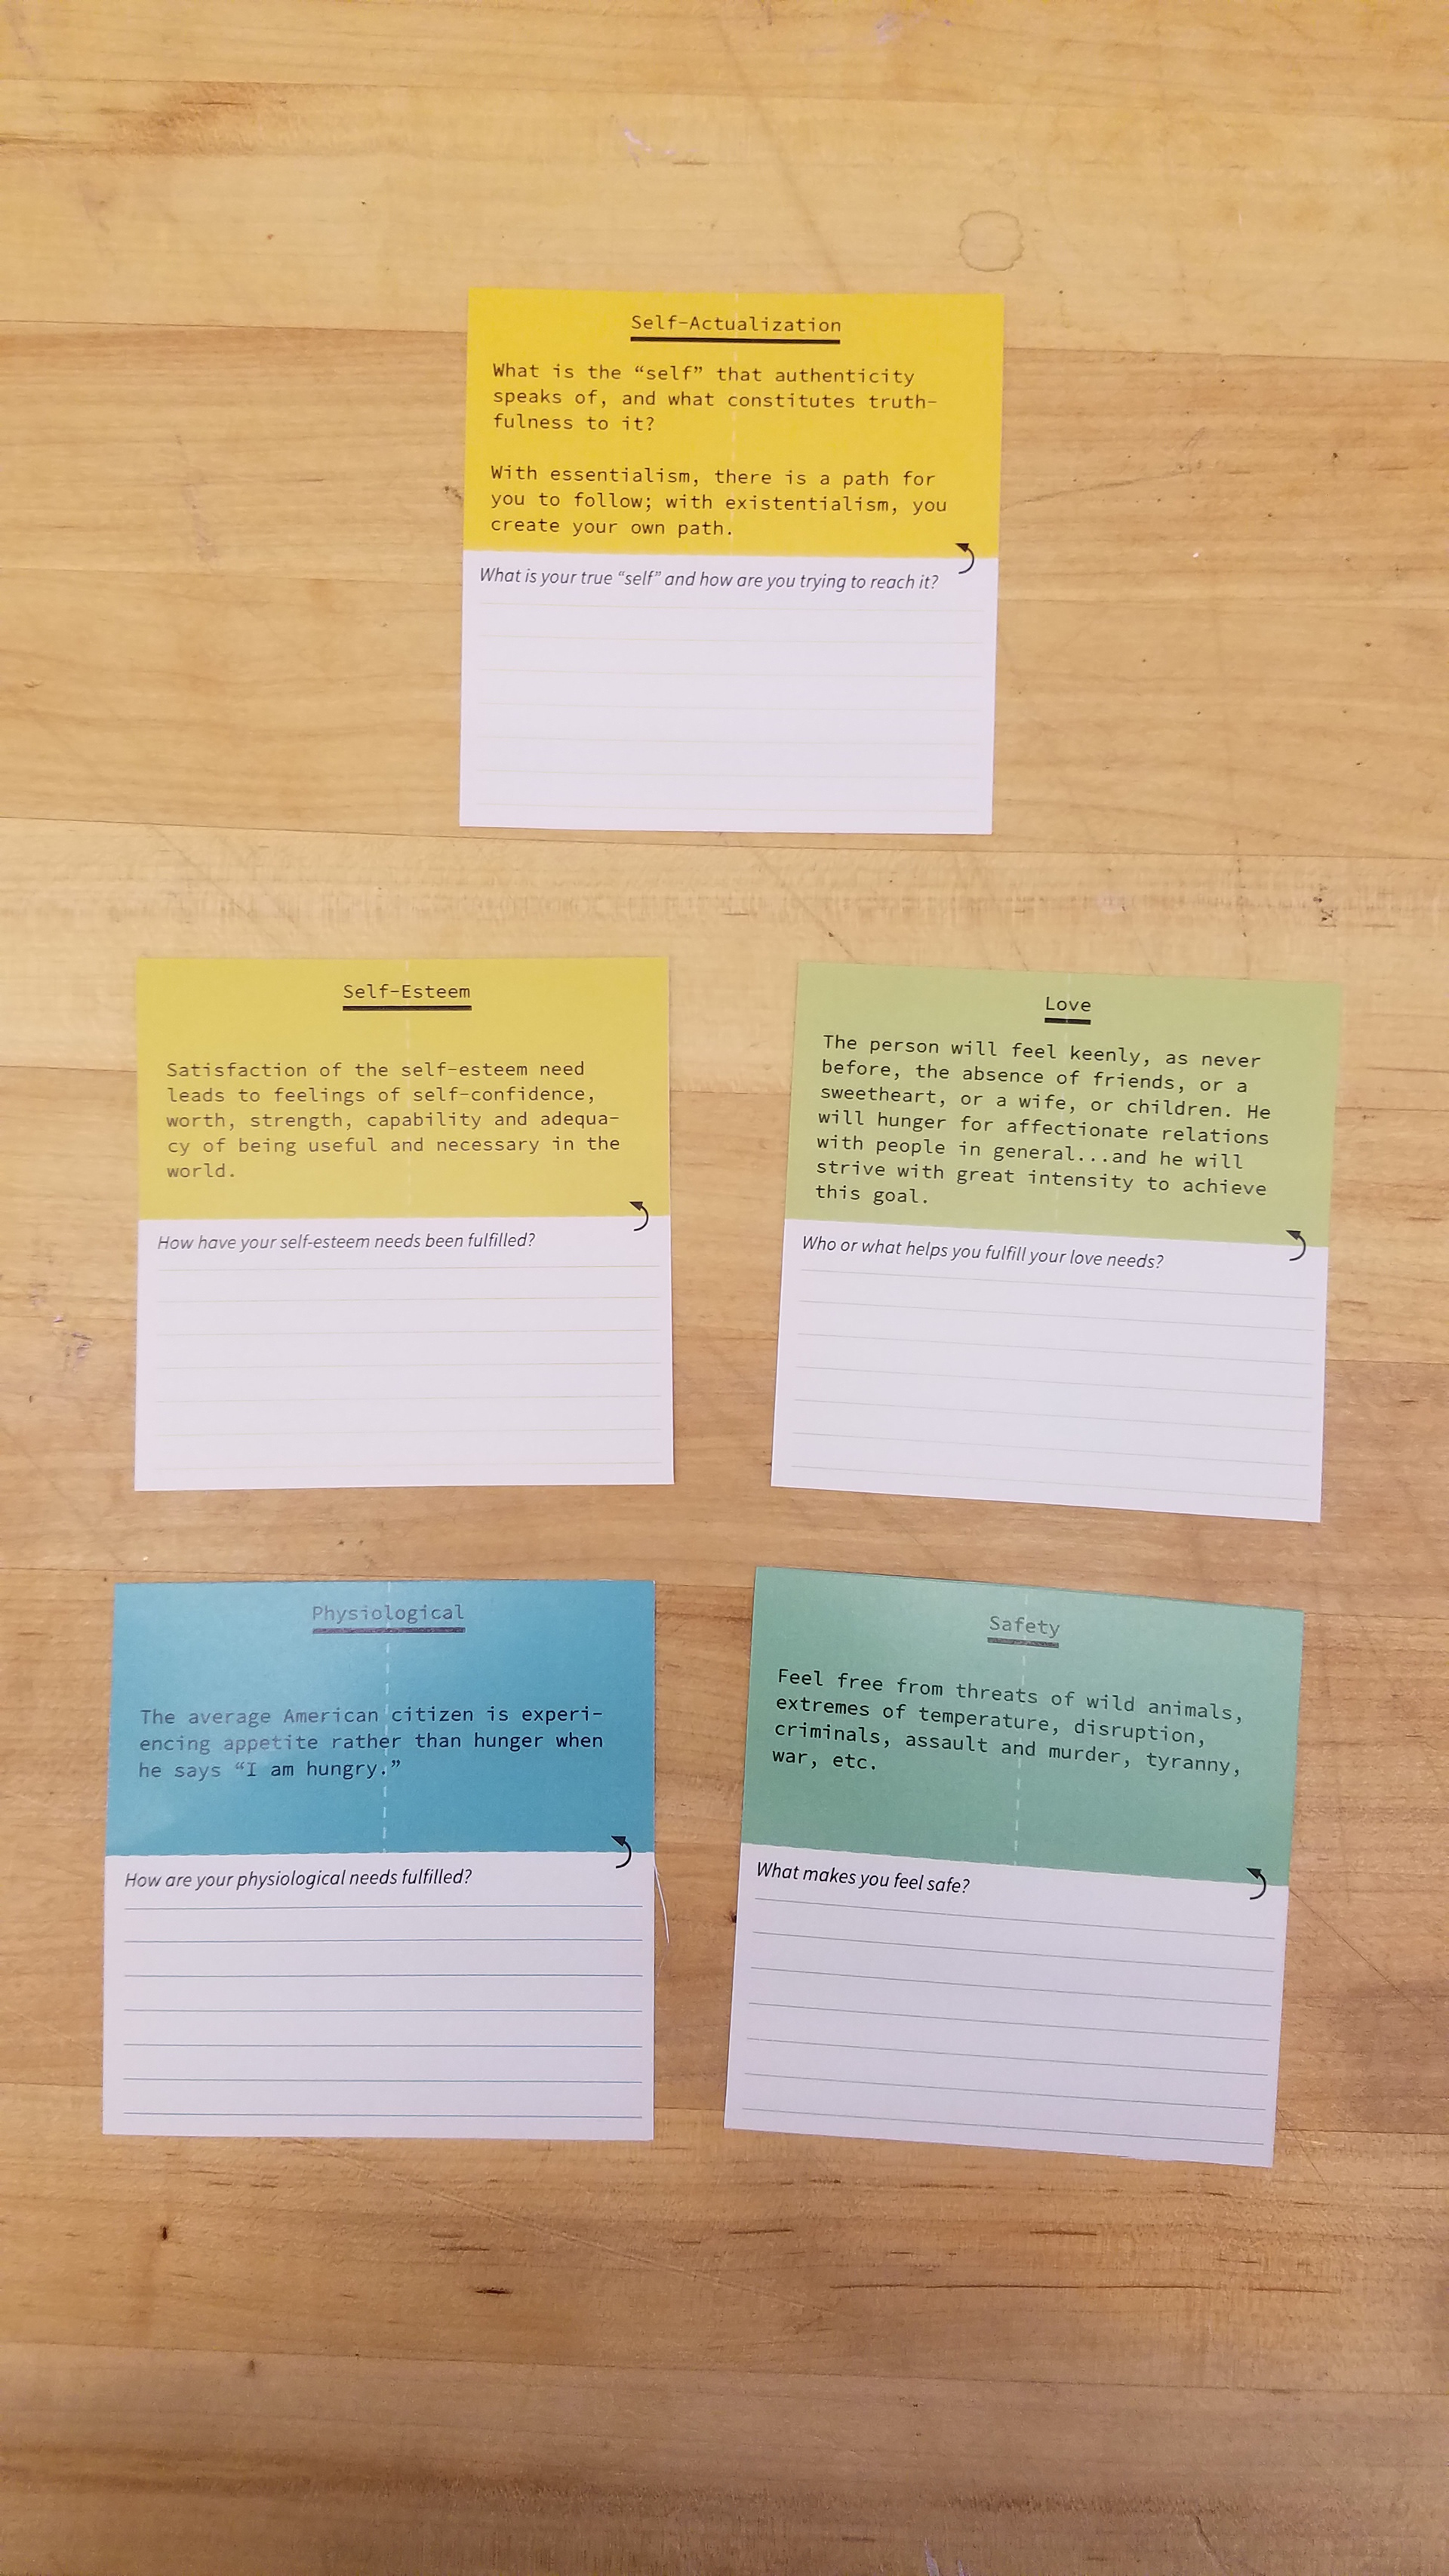 Self-Actualization
What is the “self” that authenticity
speaks of, and what constitutes truth-
fulness to it?
With essentialism, there is a path for
you to follow; with existentialism, you
create your own path.
What is your true “self” and how are you trying to reach it?
Self-Esteem
Satisfaction of the self-esteem need
leads to feelings of self-confidence,
worth, strength, capability and adequa-
cy of being useful and necessary in the
world.
How have your self-esteem needs been fulfilled?
Love
The person will feel keenly, as never
before, the absence of friends, or a
sweetheart, or a wife, or children. He
will hunger for affectionate relations
with people in general...and he will
strive with great intensity to achieve
this goal.
Who or what helps you fulfill your love needs?
Physiological
The average American citizen is experi-
encing appetite rather than hunger when
he says “I am hungry.”
How are your physiological needs fulfilled?
Safety
Feel free from threats of wild animals,
extremes of temperature, disruption,
criminals, assault and murder, tyranny,
war, etc.
What makes you feel safe?